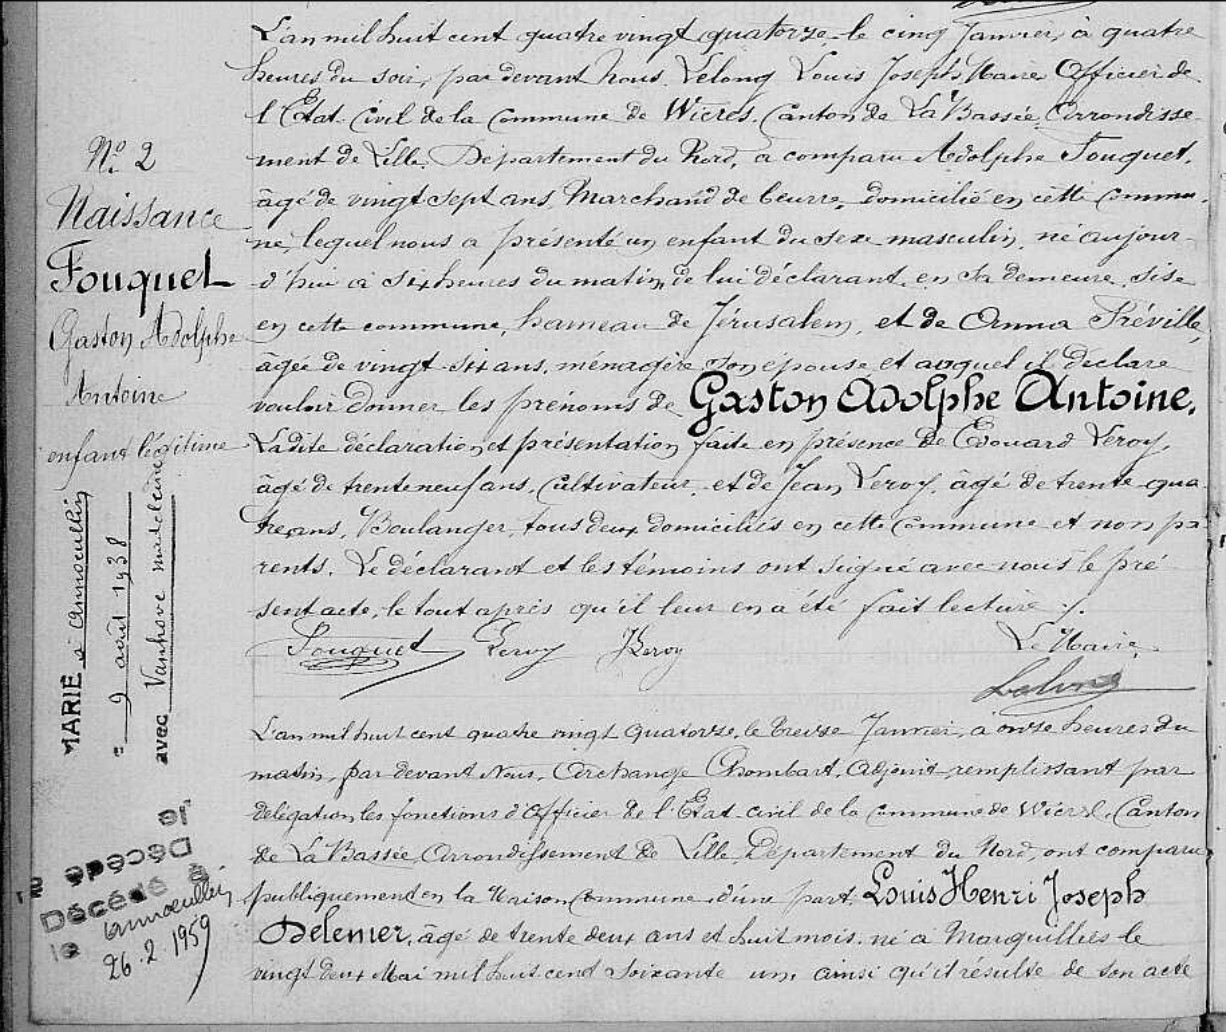 N° 2
Naissance
Fouquet
Gaston Adolphe
Antoine
enfant légitime
MARIÉ à Annoeullin
le 9 avril 1938
avec Vanhove madeleine
L'an mil huit cent quatre vingt quatorze, le cinq Janvier, à quatre
heures du soir, par devant Nous, Lelong Louis Joseph, Maire Officier de
l'Etat-Civil de la Commune de Wicres, Canton de La Bassée, Arrondisse-
ment de Lille, Département du Nord, a comparu Adolphe Fouquet,
âgé de vingt sept ans, Marchand de beurre, domicilié en cette commu-
ne, lequel nous a présenté un enfant du sexe masculin, né aujour-
d'hui à six heures du matin, de lui déclarant, en sa demeure, sise
en cette commune, hameau de Jérusalem, et de Anna Fréville,
âgée de vingt-six ans, ménagère, son épouse et auquel il déclare
vouloir donner les prénoms de Gaston Adolphe Antoine.
Ladite déclaration et présentation faite en présence de Edouard Leroy,
âgé de trente neuf ans, Cultivateur, et de Jean Leroy, âgé de trente-qua-
tre ans, Boulanger, tous deux domiciliés en cette commune et non pa-
rents. Le déclarant et les témoins ont signé avec nous le pré-
sent acte, le tout après qu'il leur en a été fait lecture ./.
Fouquet Leroy J Leroy Le Maire,
Lelong
Décédé à
le Annoeullin
26.2.1959
L'an mil huit cent quatre vingt quatorze, le treize Janvier, à onze heures du
matin, par devant Nous, Archange Chombart, Adjoint, remplissant par
délégation les fonctions d'Officier de l'Etat-civil de la commune de Wicres, Canton
de La Bassée, Arrondissement de Lille, Département du Nord, ont comparu
publiquement en la Maison Commune d'une part, Louis Henri Joseph
Delemer, âgé de trente deux ans et huit mois, né à Marquillies le
vingt deux Mai mil huit cent soixante un, ainsi qu'il résulte de son acte